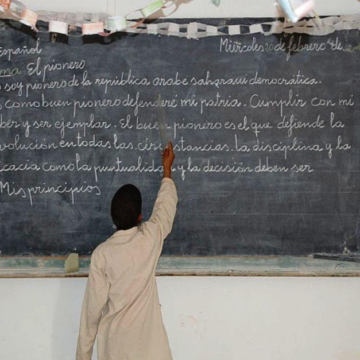 Español Miércoles 10 de febrero de
El pionero
soy pionero de la república arabe sahraui democratica.
Como buen pionero defenderé mi patria. Cumplir con mi
ber y ser ejemplar. El buen pionero es el que defiende la
volución en todas las circunstancias. La disciplina y la
cacia como la puntualidad y la decisión deben ser
Mis principios